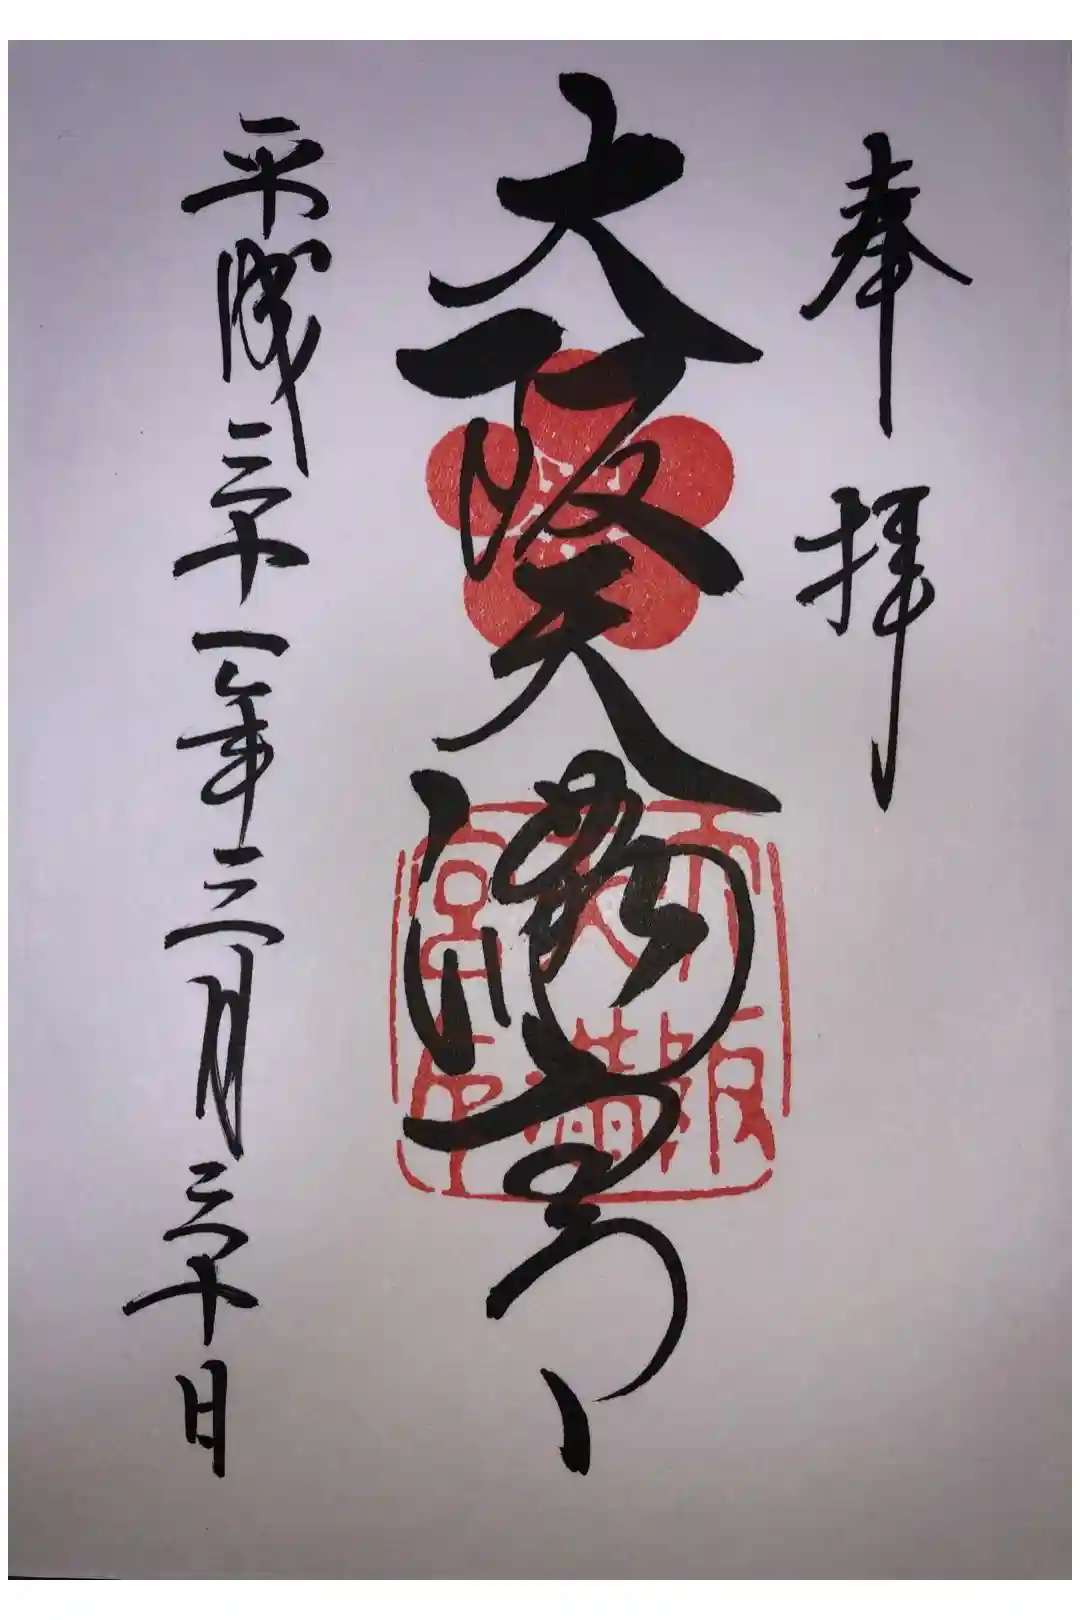 奉拝
大阪天満宮
平成三十一年三月三十日
大阪天満宮印